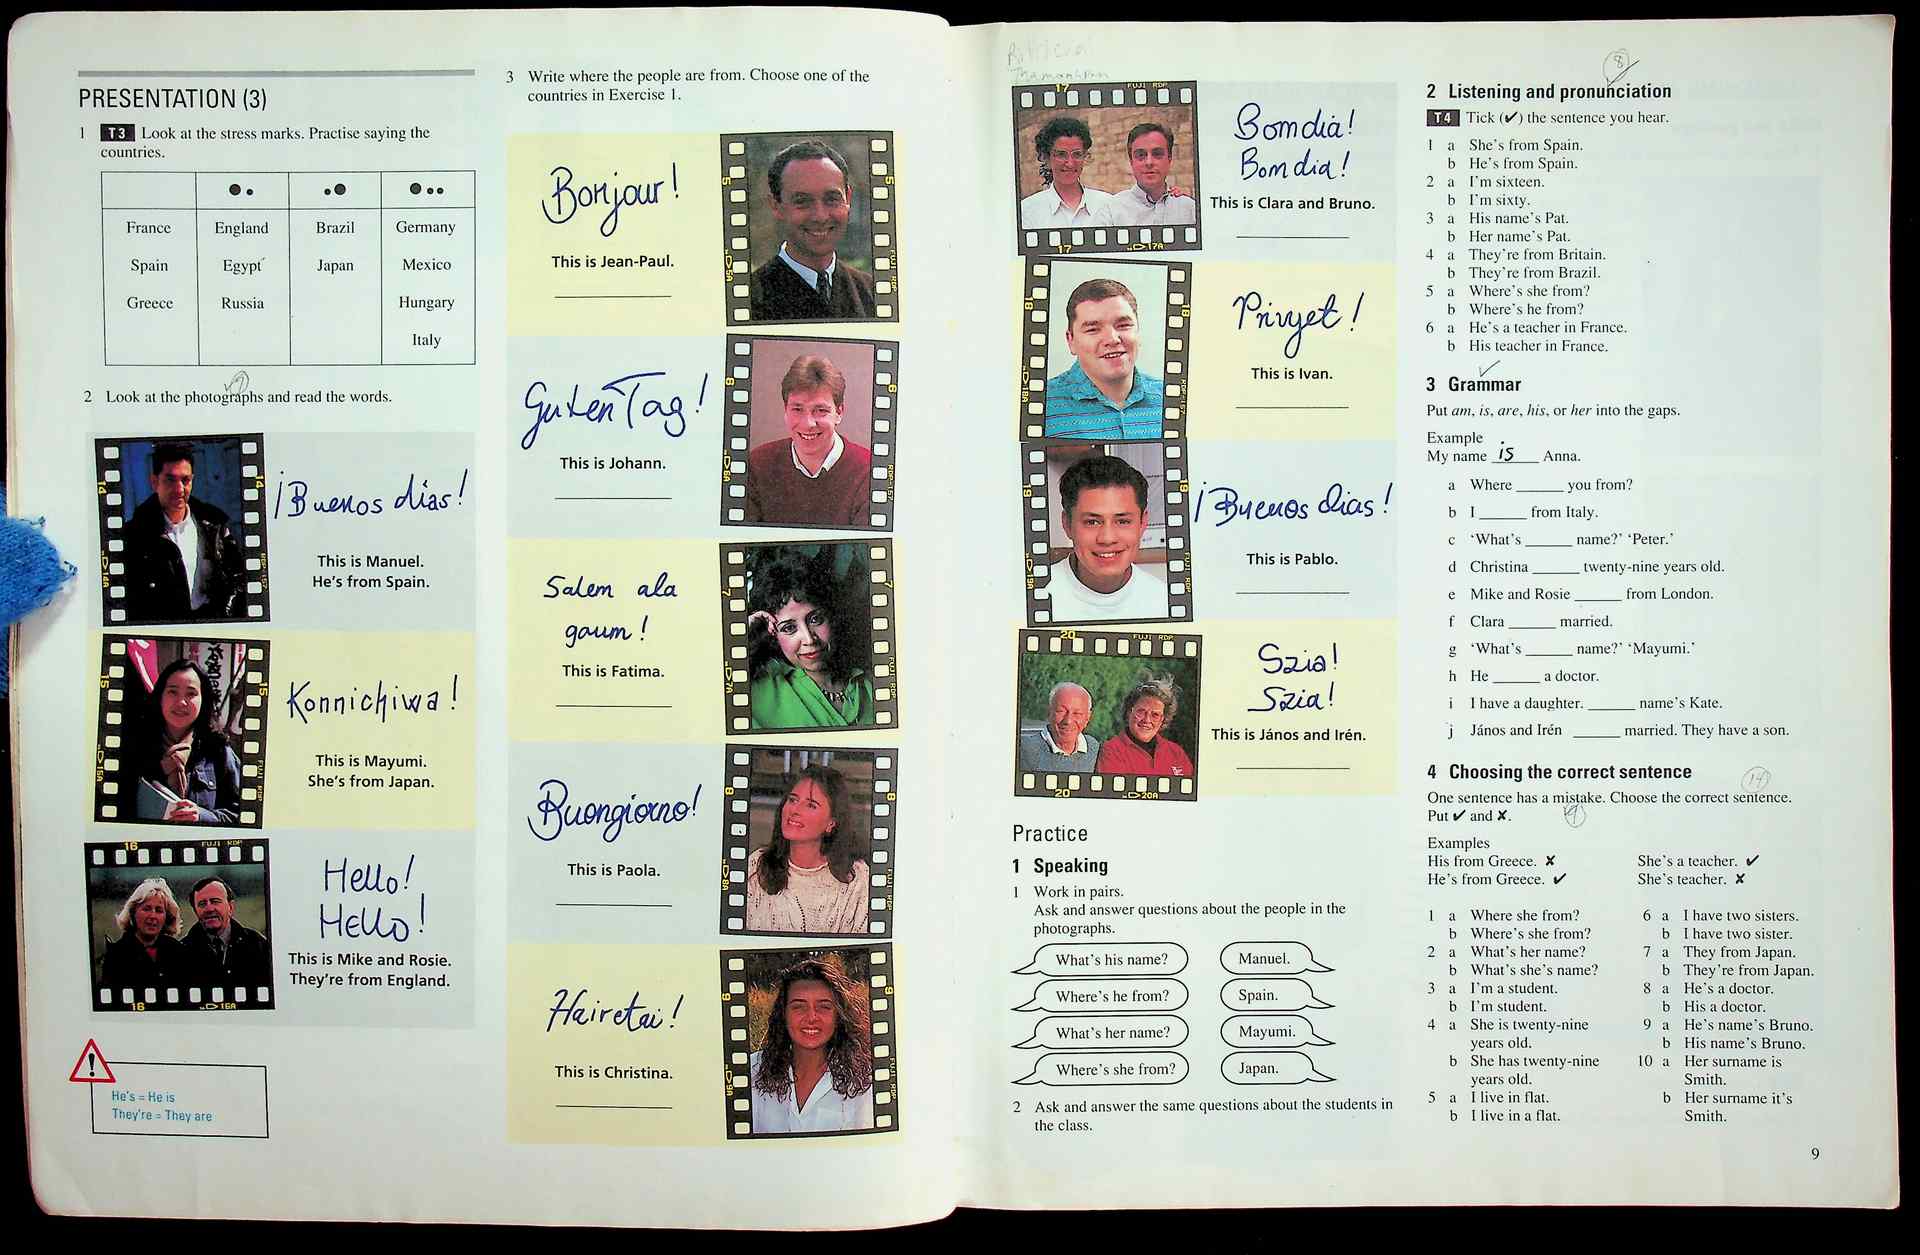 PRESENTATION (3)
1 T 3 Look at the stress marks. Practise saying the
countries.
France England Brazil Germany
Spain Egypt Japan Mexico
Greece Russia Hungary
Italy
2 Look at the photographs and read the words.
¡Buenos dias!
This is Manuel.
He's from Spain.
Konnichiwa!
This is Mayumi.
She's from Japan.
Hello!
Hello!
This is Mike and Rosie.
They're from England.
!
He's = He is
They're = They are
3 Write where the people are from. Choose one of the
countries in Exercise 1.
Bonjour!
This is Jean-Paul.
Guten Tag!
This is Johann.
Salem ala
gaum!
This is Fatima.
Buongiorno!
This is Paola.
Hairetai!
This is Christina.
Bom dia!
Bom dia!
This is Clara and Bruno.
Privyet!
This is Ivan.
¡Buenos dias!
This is Pablo.
Szia!
Szia!
This is János and Irén.
Practice
1 Speaking
1 Work in pairs.
Ask and answer questions about the people in the
photographs.
What's his name? Manuel.
Where's he from? Spain.
What's her name? Mayumi.
Where's she from? Japan.
2 Ask and answer the same questions about the students in
the class.
8
2 Listening and pronunciation
T 4 Tick (✔) the sentence you hear.
1 a She's from Spain.
b He's from Spain.
2 a I'm sixteen.
b I'm sixty.
3 a His name's Pat.
b Her name's Pat.
4 a They're from Britain.
b They're from Brazil.
5 a Where's she from?
b Where's he from?
6 a He's a teacher in France.
b His teacher in France.
3 Grammar
Put am, is, are, his, or her into the gaps.
Example
My name is Anna.
a Where ______ you from?
b I ______ from Italy.
c ‘What's ______ name?’ ‘Peter.’
d Christina ______ twenty-nine years old.
e Mike and Rosie ______ from London.
f Clara ______ married.
g ‘What's ______ name?’ ‘Mayumi.’
h He ______ a doctor.
i I have a daughter. ______ name's Kate.
j János and Irén ______ married. They have a son.
4 Choosing the correct sentence
14
One sentence has a mistake. Choose the correct sentence.
Put ✔ and ✘.
9
Examples
His from Greece. ✘ She's a teacher. ✔
He's from Greece. ✔ She's teacher. ✘
1 a Where she from?
b Where's she from?
2 a What's her name?
b What's she's name?
3 a I'm a student.
b I'm student.
4 a She is twenty-nine
years old.
b She has twenty-nine
years old.
5 a I live in flat.
b I live in a flat.
6 a I have two sisters.
b I have two sister.
7 a They from Japan.
b They're from Japan.
8 a He's a doctor.
b His a doctor.
9 a He's name's Bruno.
b His name's Bruno.
10 a Her surname is
Smith.
b Her surname it's
Smith.
9